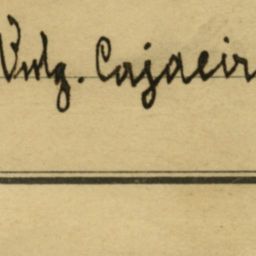 Vulg. Cajaeir